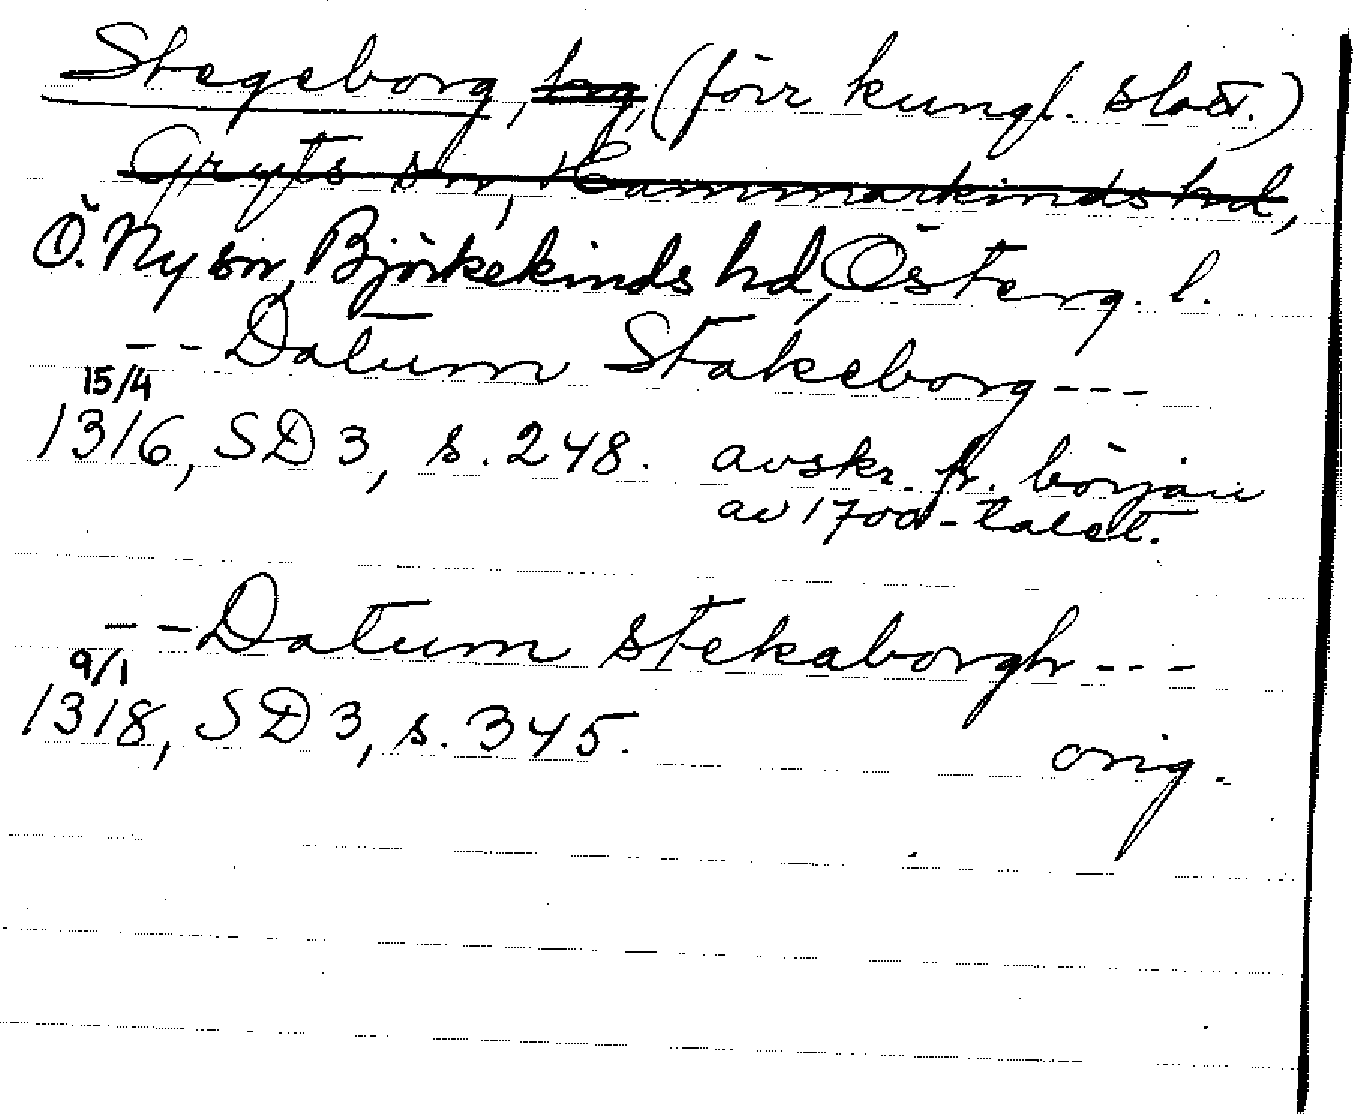 Stegeborg, hg, (förr kungl. slott.)
Gryts sn, Hammarkinds hd,
Ö. Ny sn, Björkekinds hd, Österg. l.
-- Datum Stakeborg ---
15/4
1316, SD 3, s. 248. avskr. fr. början
av 1700-talet.
-- Datum stekaborgh ---
9/1
1318, SD 3, s. 345. orig.